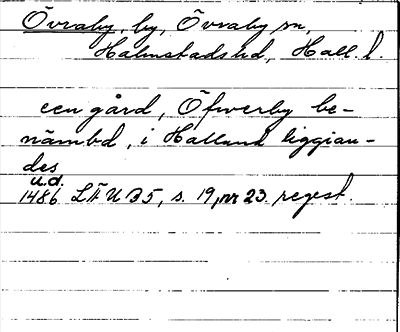 Övraby, by, Övraby sn,
Halmstads hd, Hall. l.
een gård, Öfwerby be-
nämbd, i Halland liggian-
des
u.d.
1486 LÄU B5, s. 19, nr 23. regest.